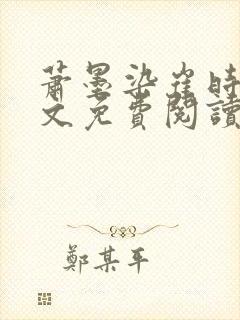 蕭墨染崖時
文免費閱讀
鄭某平